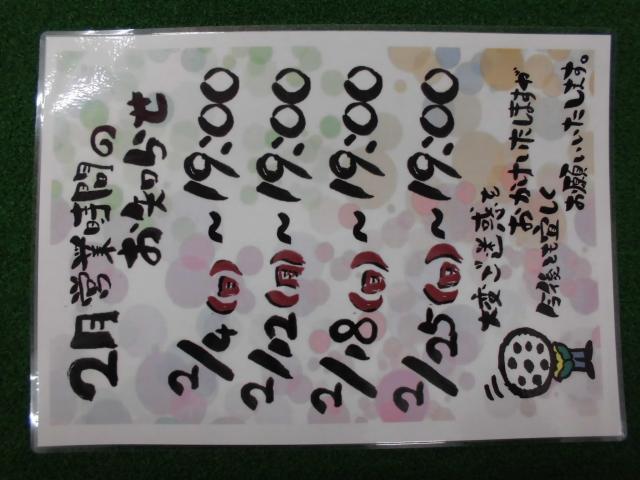 2月営業時間の
お知らせ
2/4(日)～19:00
2/12(月)～19:00
2/18(日)～19:00
2/25(日)～19:00
大変ご迷惑を
おかけいたしますが
今後とも宜しく
お願いいたします。